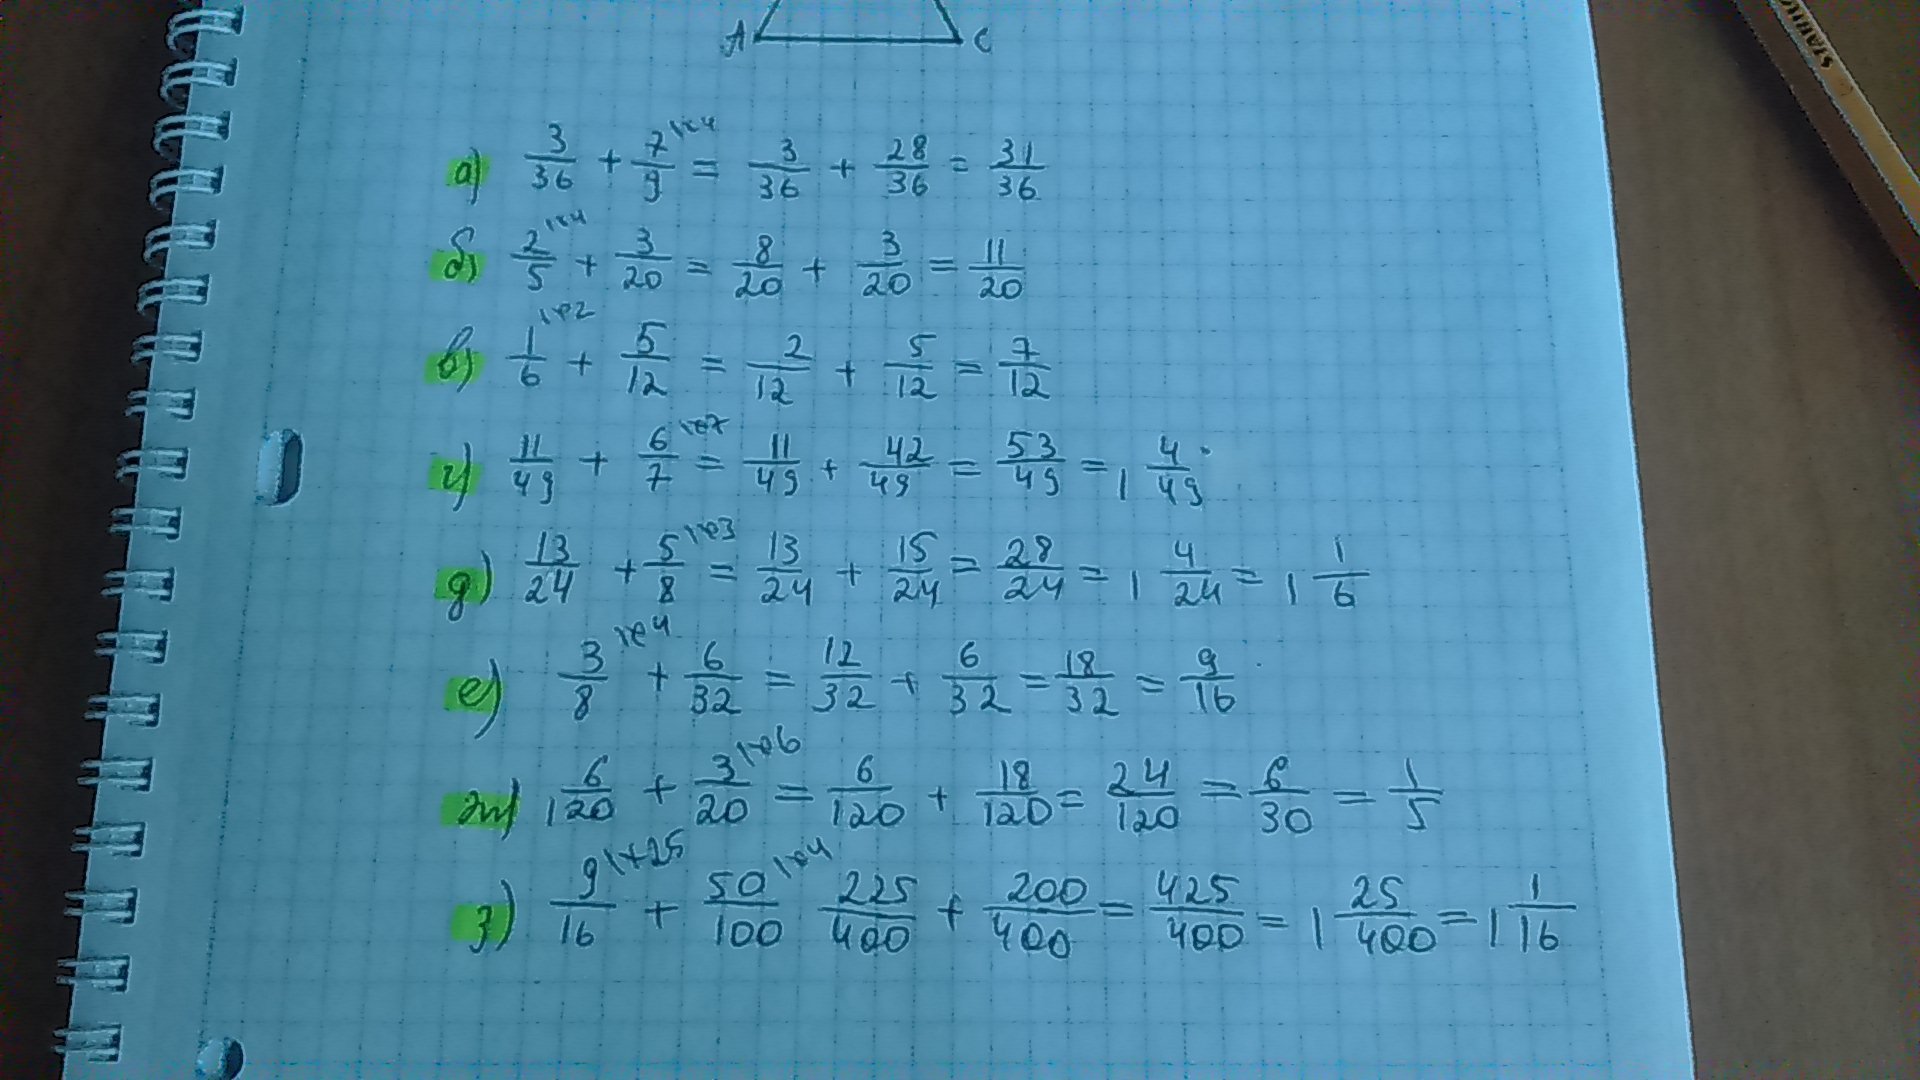 A C
STABILO
а) 3/36 + 7/9 |·4 = 3/36 + 28/36 = 31/36
б) 2/5 |·4 + 3/20 = 8/20 + 3/20 = 11/20
в) 1/6 |·2 + 5/12 = 2/12 + 5/12 = 7/12
г) 11/49 + 6/7 |·7 = 11/49 + 42/49 = 53/49 = 1 4/49
д) 13/24 + 5/8 |·3 = 13/24 + 15/24 = 28/24 = 1 4/24 = 1 1/6
е) 3/8 |·4 + 6/32 = 12/32 + 6/32 = 18/32 = 9/16
ж) 6/120 + 3/20 |·6 = 6/120 + 18/120 = 24/120 = 6/30 = 1/5
з) 9/16 |·25 + 50/100 |·4 225/400 + 200/400 = 425/400 = 1 25/400 = 1 1/16